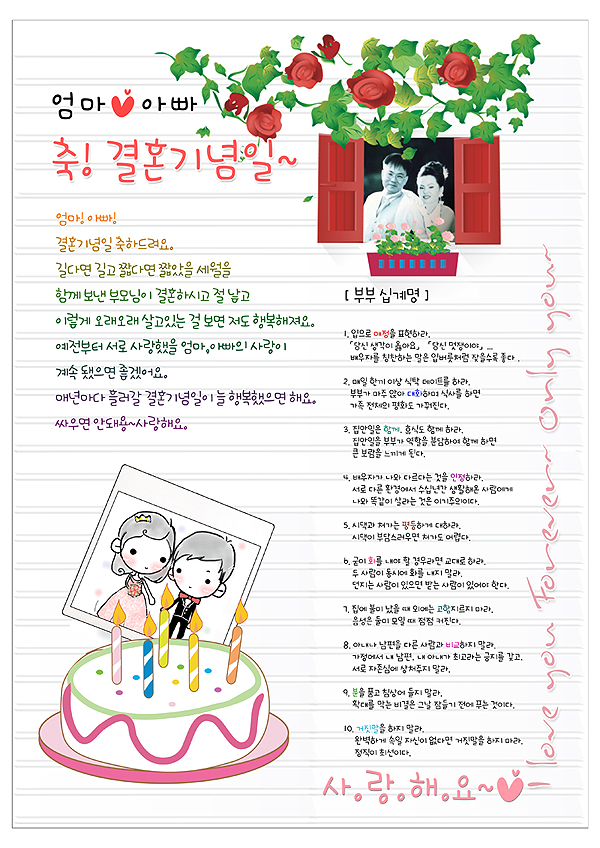 엄마 아빠
축! 결혼기념일~
엄마! 아빠!
결혼기념일 축하드려요.
길다면 길고 짧다면 짧았을 세월을
함께 보낸 부모님이 결혼하시고 절 낳고
이렇게 오래오래 살고있는 걸 보면 저도 행복해져요.
예전부터 서로 사랑했을 엄마,아빠의 사랑이
계속 됐으면 좋겠어요.
매년마다 흘러갈 결혼기념일이 늘 행복했으면 해요.
싸우면 안돼용~사랑해요.
[ 부부 십계명 ]
1. 입으로 애정을 표현하라.
「당신 생각이 옳아요」 「당신 멋쟁이야」 ...
배우자를 칭찬하는 말은 입버릇처럼 잦을수록 좋다 .
2. 매일 한끼 이상 식탁 데이트를 하라.
부부가 마주 앉아 대화하며 식사를 하면
가족 전체의 평화도 가꿔진다.
3. 집안일은 함께. 휴식도 함께 하라.
집안일을 부부가 역할을 분담하여 함께 하면
큰 보람을 느끼게 된다.
4. 배우자가 나와 다르다는 것을 인정하라.
서로 다른 환경에서 수십년간 생활해온 사람에게
나와 똑같이 살라는 것은 이기주의이다.
5. 시댁과 처가는 평등하게 대하라.
시댁이 부담스러우면 처가도 어렵다.
6. 굳이 화를 내야 할 경우라면 교대로 하라.
두 사람이 동시에 화를 내지 말라.
던지는 사람이 있으면 받는 사람이 있어야 한다.
7. 집에 불이 났을 때 외에는 고함지르지 마라.
음성은 둘이 모일 때 점점 커진다.
8. 아내나 남편을 다른 사람과 비교하지 말라.
가정에서 내 남편, 내 아내가 최고라는 긍지를 갖고,
서로 자존심에 상처주지 말라.
9. 분을 품고 침상에 들지 말라.
확대를 막는 비결은 그날 잠들기 전에 푸는 것이다.
10. 거짓말을 하지 말라.
완벽하게 속일 자신이 없다면 거짓말을 하지 마라.
정직이 최선이다.
사.랑.해.요~
I love you Forever~ Only your~